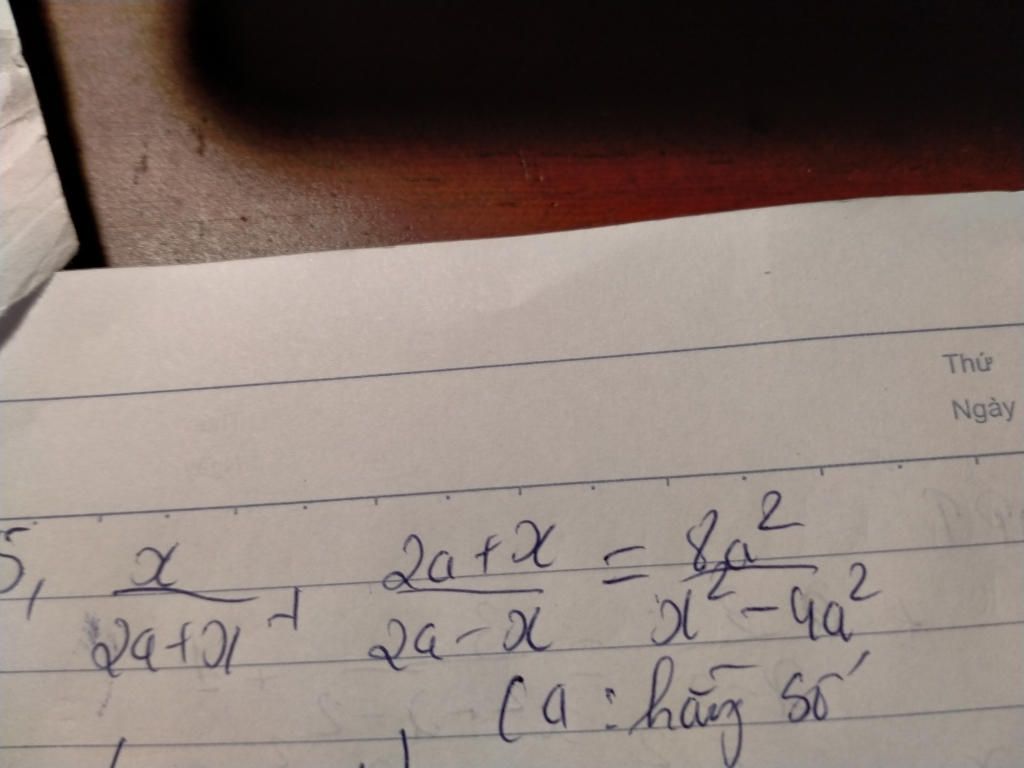 Thứ
Ngày
5, x/(2a+x) - (2a+x)/(2a-x) = 8a²/(x²-4a²)
(a : hằng số